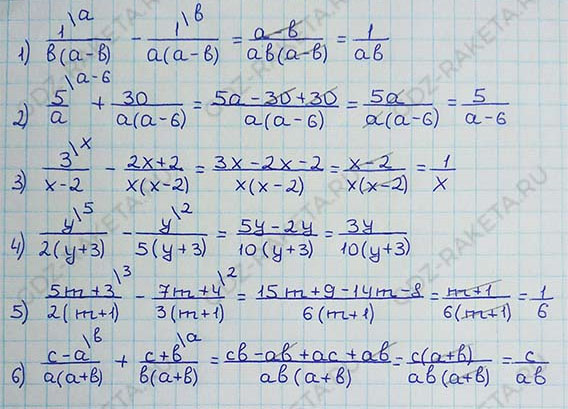 1) 1\a / b(a-b) - 1\b / a(a-b) = a-b / ab(a-b) = 1 / ab
2) 5\a-6 / a + 30 / a(a-6) = 5a-30+30 / a(a-6) = 5a / a(a-6) = 5 / a-6
3) 3\x / x-2 - 2x+2 / x(x-2) = 3x-2x-2 / x(x-2) = x-2 / x(x-2) = 1 / x
4) y\5 / 2(y+3) - y\2 / 5(y+3) = 5y-2y / 10(y+3) = 3y / 10(y+3)
5) 5m+3\3 / 2(m+1) - 7m+4\2 / 3(m+1) = 15m+9-14m-8 / 6(m+1) = m+1 / 6(m+1) = 1 / 6
6) c-a\b / a(a+b) + c+b\a / b(a+b) = cb-ab+ac+ab / ab(a+b) = c(a+b) / ab(a+b) = c / ab
GDZ-RAKETA.RU